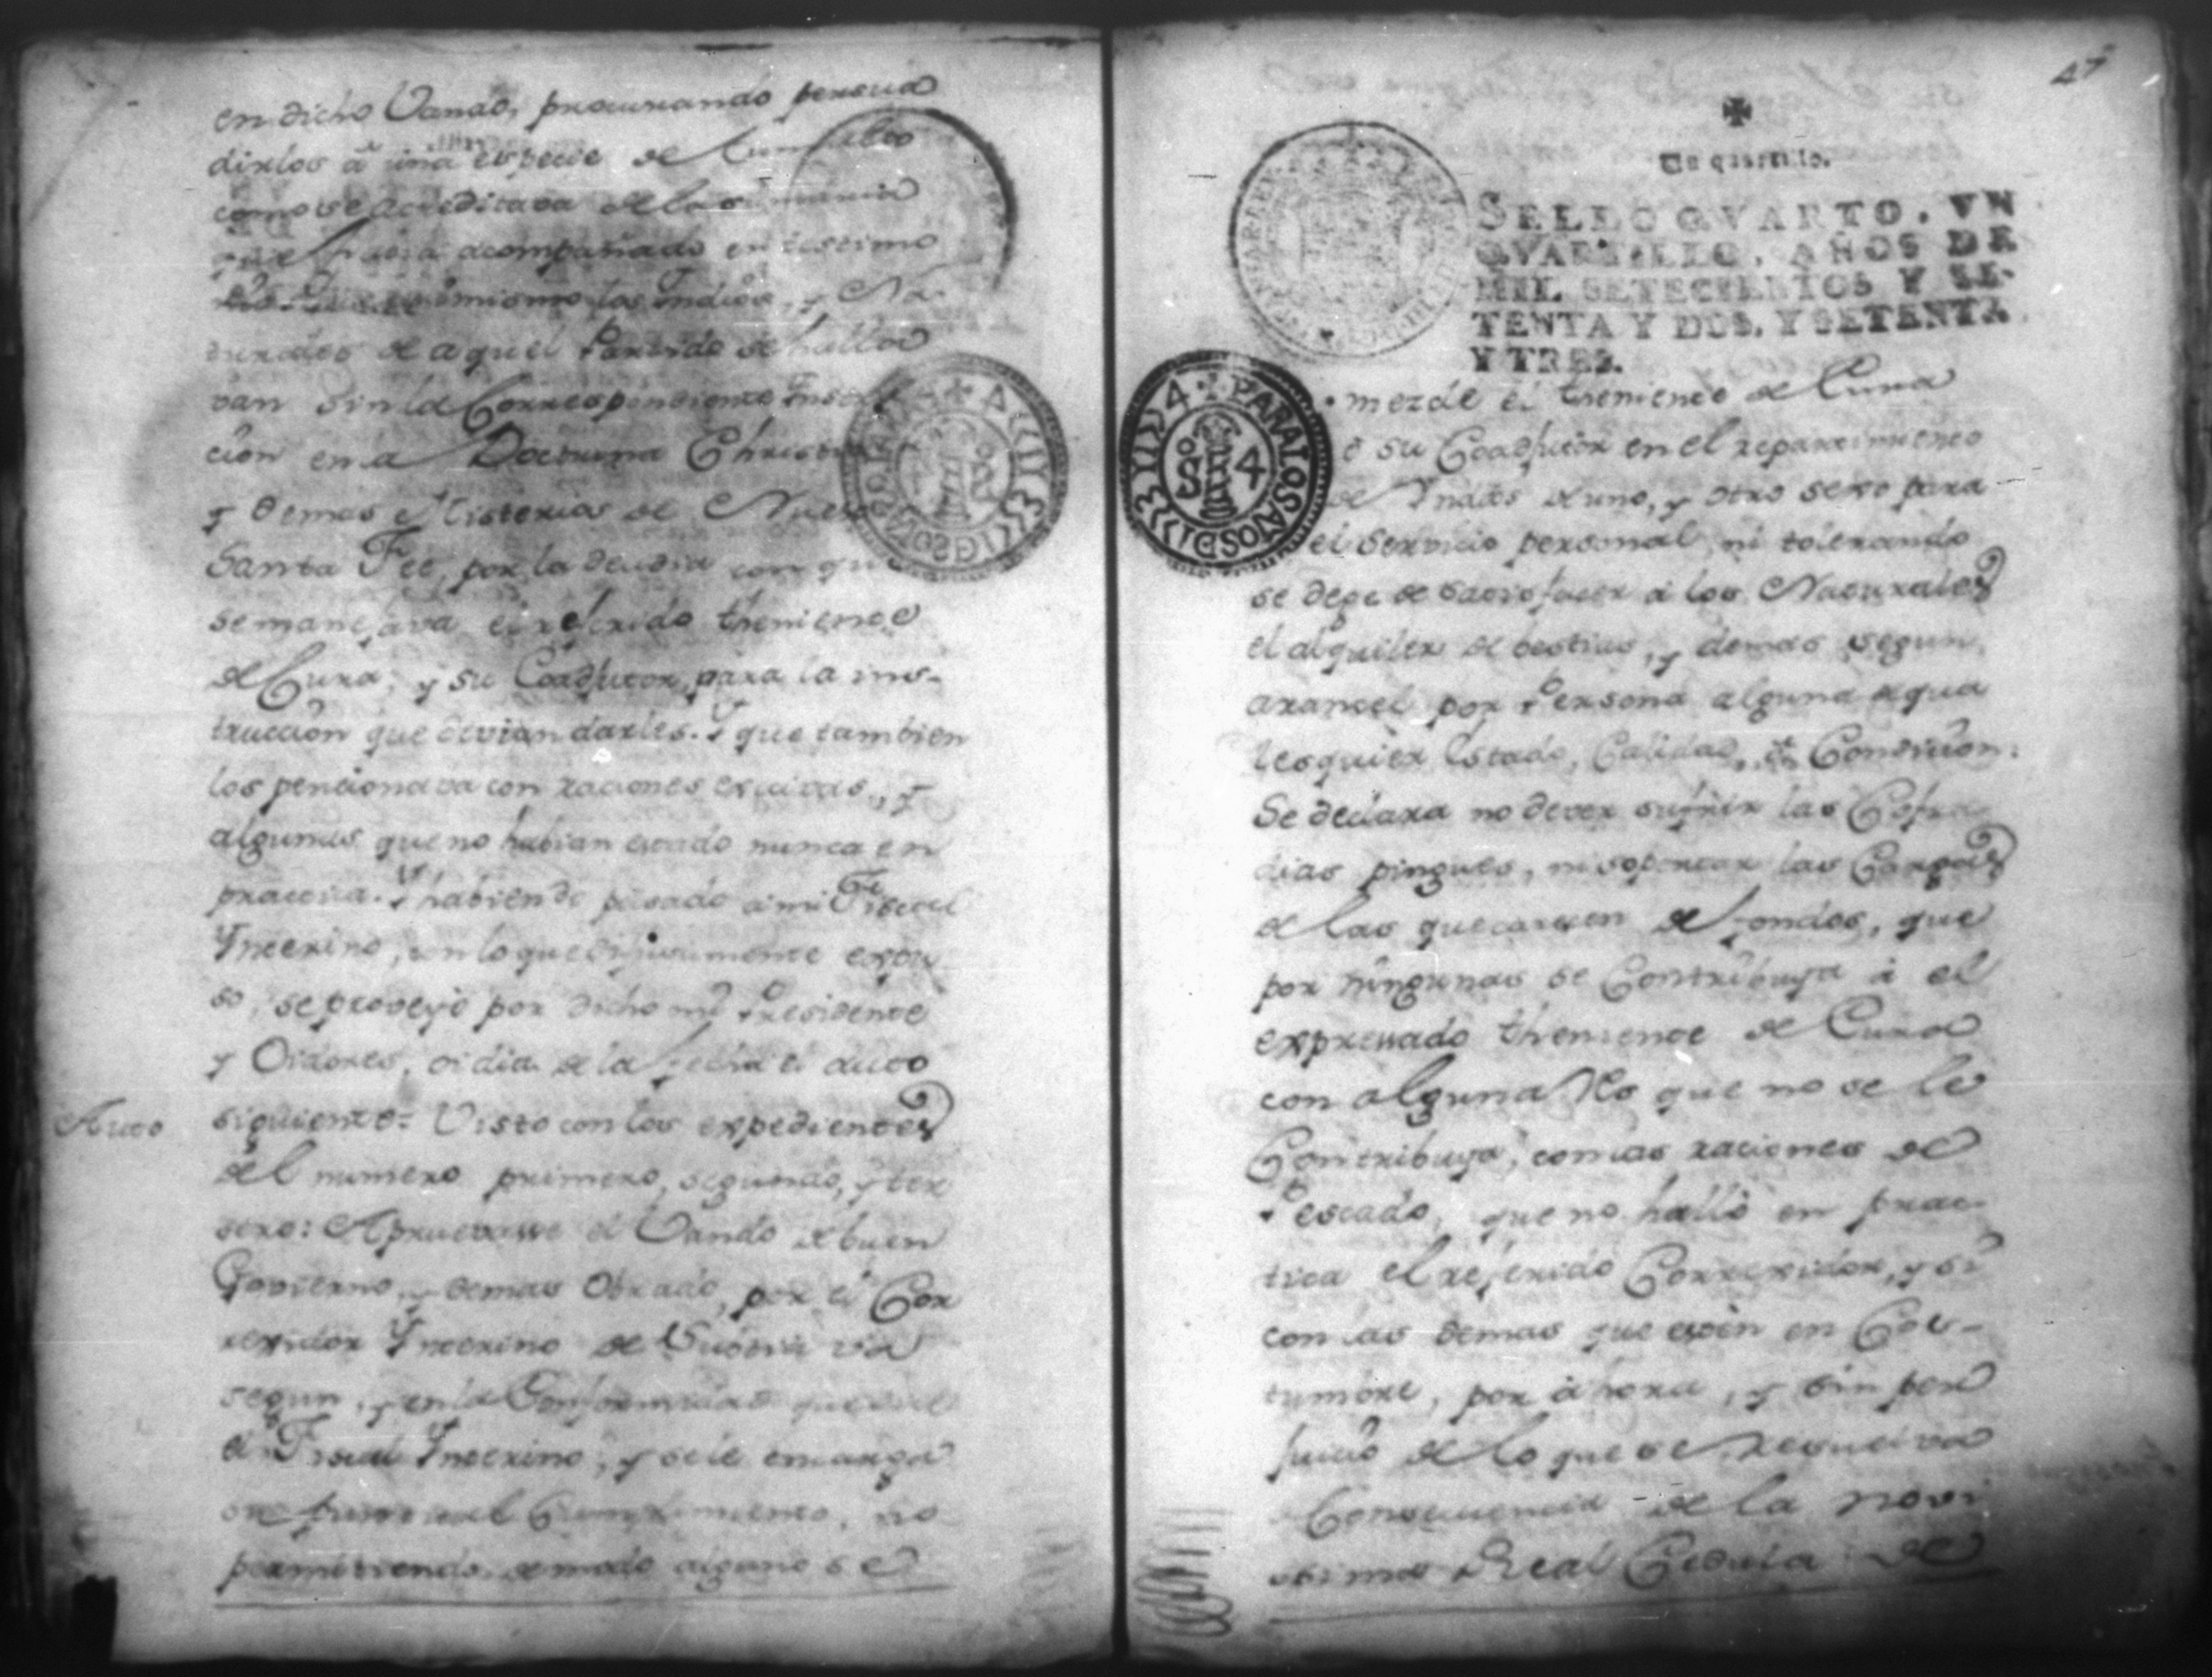 en dicho Vando, procurando persua
dirlos á una especie de
como se acreditava de la sumaria
que havia acompañado en testimo
mismo los Indios, y Na
turales de aquel Partido se halla
van sin la Correspondiente Instruc
cion en la Doctrina Christiana
y demas Misterios de Nuestra
Santa Feé, por la desidia con que
se manejava el referido theniente
de Cura, y su Coadjutor, para la ins-
truccion que devian darles. Y que tambien
los pencionava con raciones excesivas, y
algunas que no habian estado nunca en
practica. Y habiendo pasado a mi Fiscal
Ynterino, con lo que difusamente expu
so, se proveyó por dicho mi Presidente
y Oidores, oi dia de la fecha el auto
Auto
siguiente= Visto con los expedientes
del numero primero, segundo, y ter
sero: Apruevasse el Vando de buen
Govierno, y demas Obrado, por el Cor
rexidor Ynterino de
segun, y en la Conformidad que
el Fiscal Ynterino, y se le encarga
su puntual Cumplimiento, no
permitiendo de modo alguno se
47
Un quartillo.
SELLO QVARTO, VN
QVARTILLO, AÑOS DE
MIL SETECIENTOS Y SE-
TENTA Y DOS, Y SETENTA
Y TRES.
PARA LOS AÑOS DI
S 4
mezcle el theniente de Cura
ó su Coadjutor en el repartimiento
de Yndios de uno, y otro sexo para
el servicio personal, ni tolerando
se deje de satisfacer á los Naturales
el alquiler de bestias, y demas segun
arancel por Persona alguna de qua
lesquier Estado, Calidad, ó Condicion:
Se declara no dever sufrir las Cofra
dias pingues, ni soportar las Cargas
de las que carecen de fondos, que
por ningunas se Contribuya á el
expressado theniente de Cura
con alguna Ro que no se le
Contribuya, con las raciones de
Pescado, que no halló en prac
tica el referido Correxidor, y si
con las demas que estén en Cos-
tumbre, por ahora, y sin per
juicio de lo que se resuelva
Consecuencia de la novi
sima Real Cedula de